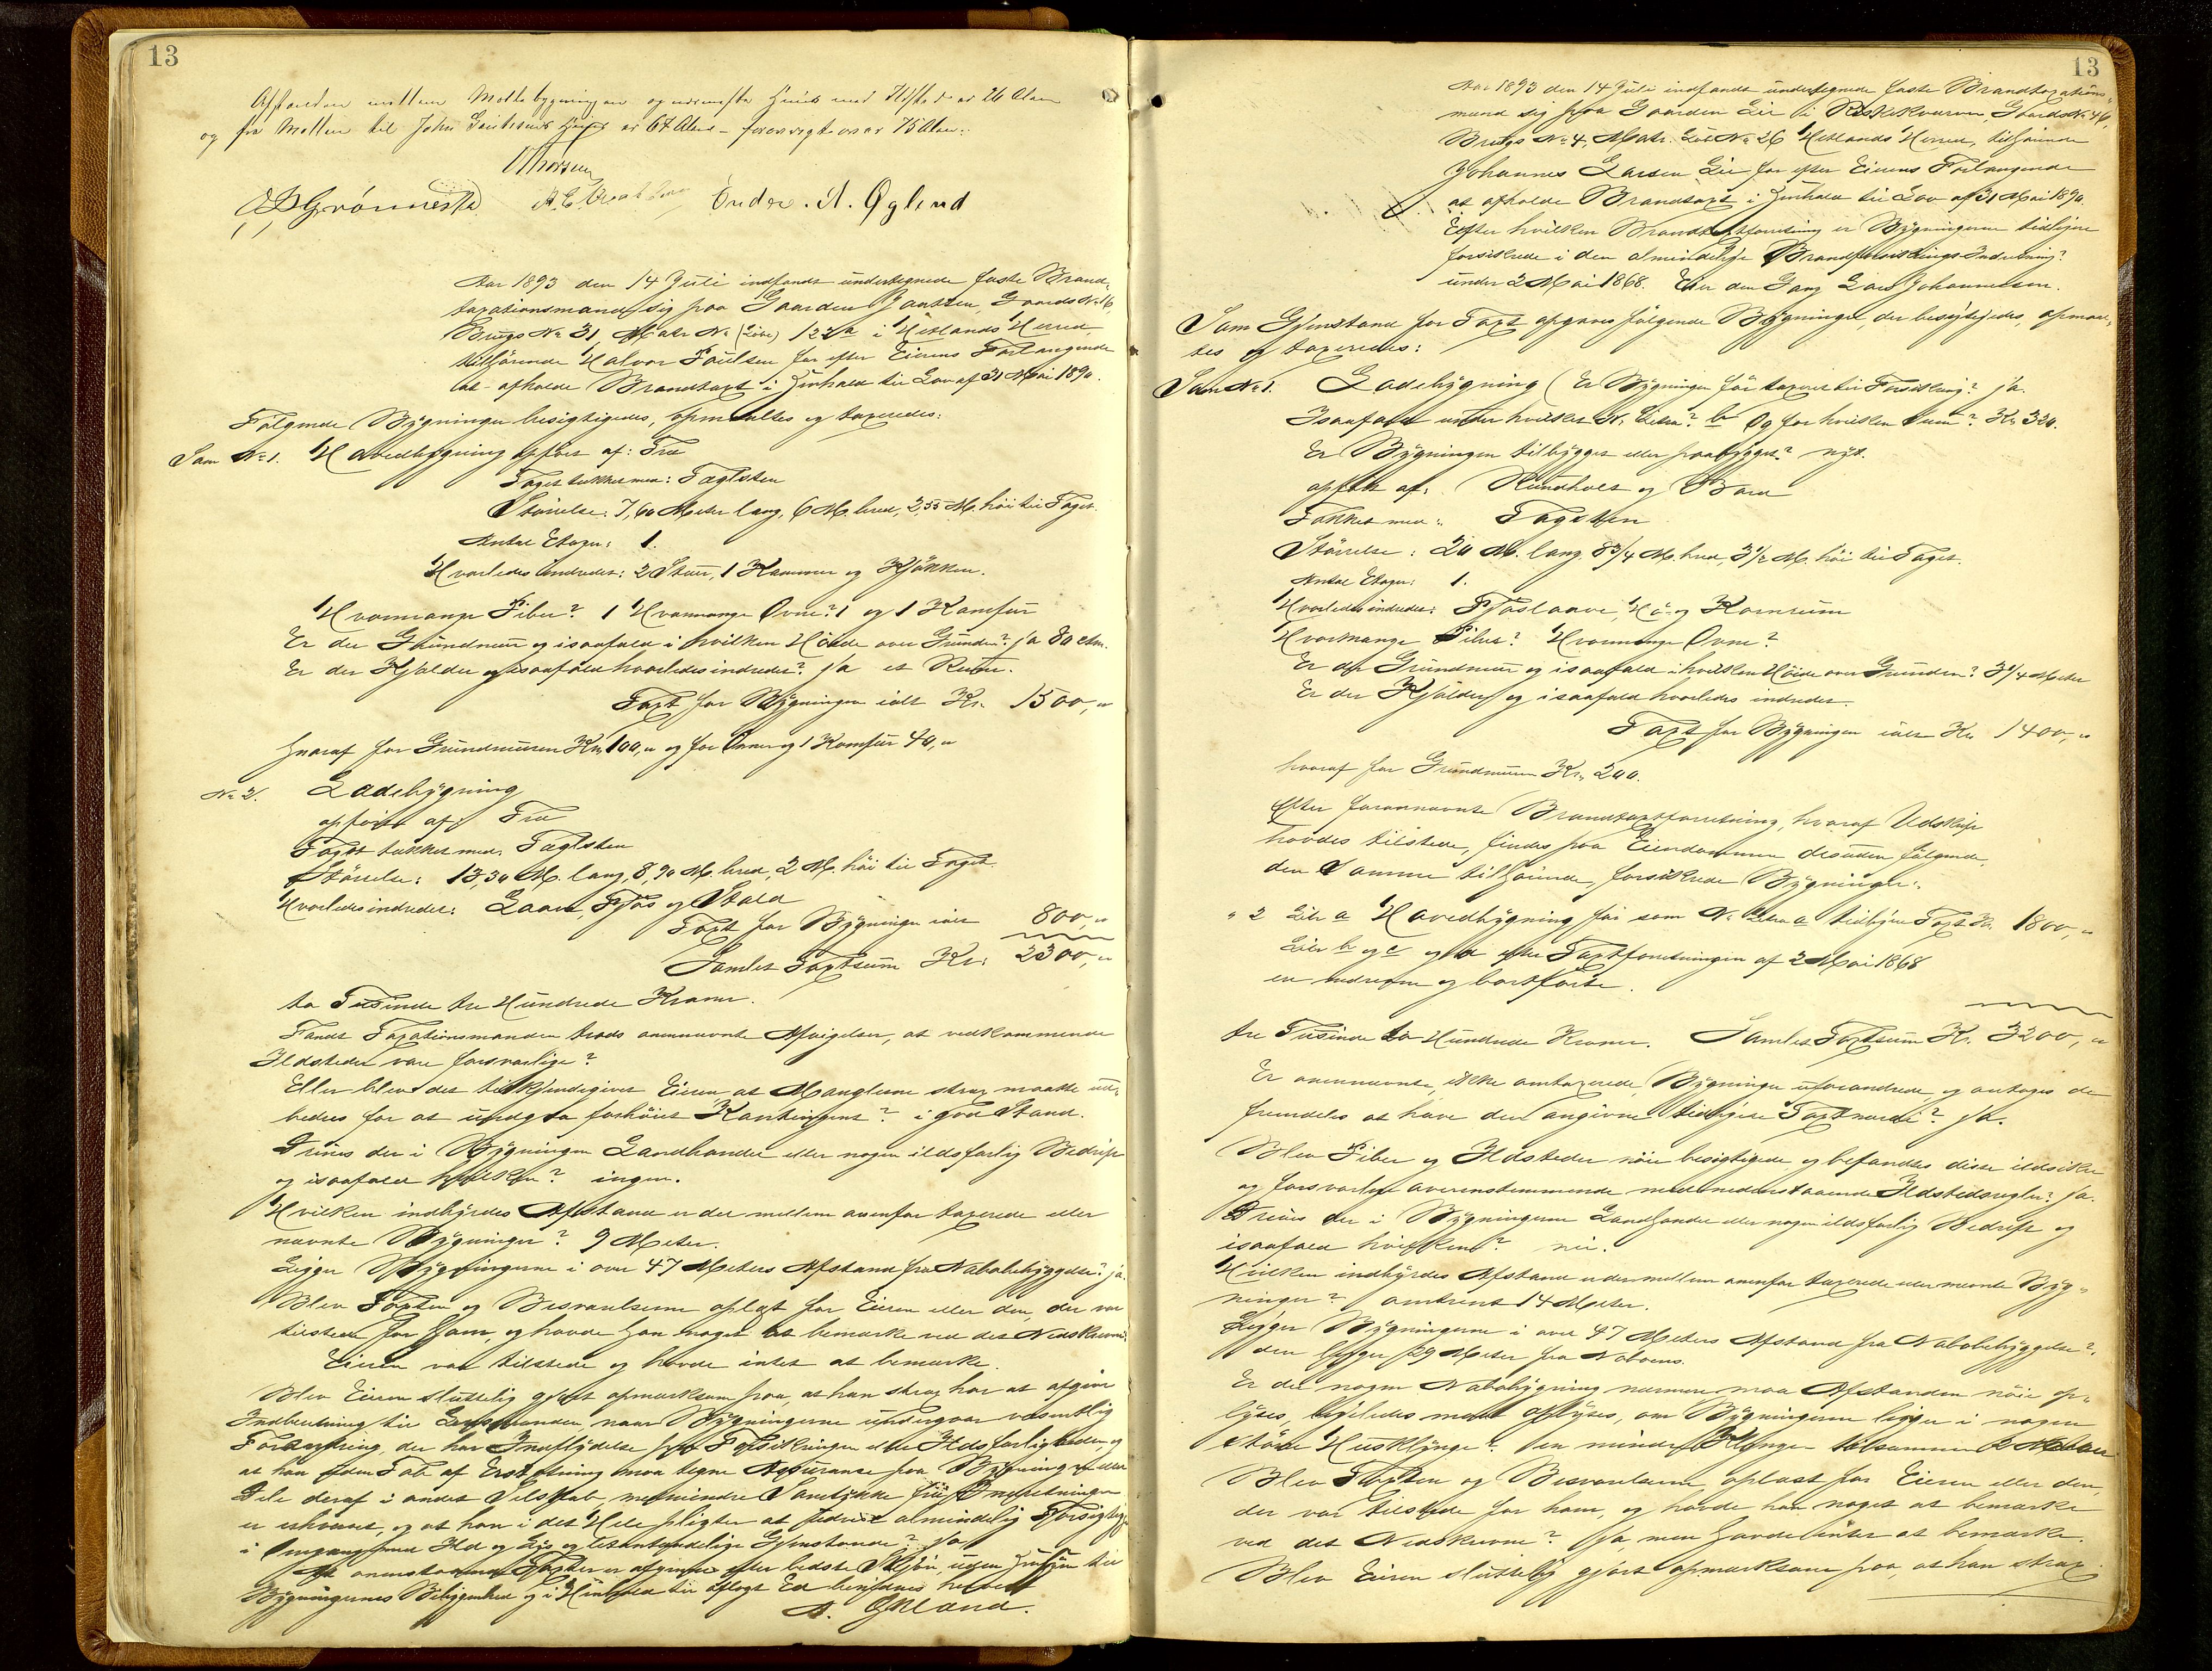 13
Afstanden mellem Mølle bygningen og nærmeste Huus med Ildsted er 26 Alen
og fra Møllen til John Huus er 64 Alen - forøvrigt over 75 Alen.
Thorsen
Grønnestad Endre. A. Øglend
Aar 1893 den 14 Juli indfandt undertegnede faste Brand-
taxationsmand sig paa Gaarden Gaards No 16,
Brugs No 31, Matr No (Løbe) 122a i Hetlands Herred
tilhørende Halvor Paulsen for efter Eierens Forlangende
at afholde Brandtaxt i Henhold til Lov af 31 Mai 1890.
Følgende Bygninger besigtigedes, opmaaltes og taxeredes:
Som No 1. Hovedbygning opført af: Træ
Taget tækket med: Taglsten
Størrelse: 7,60 Meter lang, 6 M. bred, 2,55 M. høi til Taget.
Antal Etager: 1.
Hvorledes indredet: 2 Stuer, 1 Kammer og Kjøkken.
Hvormange Piber? 1 Hvormange Ovne? 1 og 1 Komfur
Er der Grundmur og isaafald i hvilken Høide over Grunden? ja 80 ctm.
Er der Kjelder og isaafald hvorledes indredet? ja et Rum.
Taxt for Bygningen ialt Kr. 1500,"
Hvoraf for Grundmuren Kr. 100," og for Ovne og 1 Komfur 40,"
No 2. Ladebygning
opført af: Træ
Taget tækket med: Taglsten
Størrelse: 13,30 M. lang, 8,90 M. bred, 2 M. høi til Taget
Hvorledes indredet: Laave, Fjøs og Stald
Taxt for Bygningen ialt 800,"
Samlet Taxtsum Kr. 2300,"
to Tusinde tre Hundrede Kroner.
Fandt Taxationsmanden trods ovennævnte Afvigelser, at vedkommende
Ildsteder vare forsvarlige?
Eller blev det tilkjendegivet Eieren, at Manglerne strax maatte ud-
bedres for at undgaa forhøiet Kontingent? i god Stand.
Drives der i Bygningen Landhandel eller nogen ildsfarlig Bedrift
og isaafald hvilken? ingen.
Hvilken indbyrdes Afstand er der mellem ovenfor taxerede eller
nævnte Bygninger? 9 Meter.
Ligger Bygningerne i over 47 Meters Afstand fra Nabobebyggelse? ja.
Blev Taxten og Besvarelserne oplæst for Eieren eller den, der var
tilstede for ham, og havde han noget at bemærke ved det Nedskrevne?
Eieren var tilstede og havde intet at bemærke.
Blev Eieren sluttelig gjort opmærksom paa, at han strax har at afgive
Indberetning til Lensmanden, naar Bygningerne undergaar væsentlig
Forandring, der har Indflydelse paa Forsikringen eller Ildsfarligheden, og
at han uden Tab af Erstatning maa tegne Assurance paa Bygning eller
Dele deraf i andet Selskab, medmindre Samtykke fra Indretningen
er erhvervet, og at han i det Hele pligter at udvise almindelig Forsigtighed
i Omgang med Ild og Lys og letantændelige Gjenstande? Ja
At ovenstaaende Taxter er afgivne efter bedste Skjøn, uden Hensyn til
Bygningernes Beliggenhed og i Henhold til aflagt Ed bevidnes herved
A. Øglænd.
13
Aar 1893 den 14 Juli indfandt undertegnede faste Brandtaxations-
mand sig paa Gaarden Lie i Riskekvarven, Gaards No 46,
Brugs No 4, Matr. Løb No 26 Hetlands Herred, tilhørende
Johannes Larsen Lie for efter Eierens Forlangende
at afholde Brandtaxt i Henhold til Lov af 31 Mai 1890.
Efter hvilken Brandtaxtforretning er Bygningerne tidligere
forsikrede i den almindelige Brandforsikrings-Indretning?
under 2 Mai 1868. Eier den Gang Lars Johannesen.
Som Gjenstand for Taxt opgaves følgende Bygninger, der besigtigedes, opmaal-
tes og taxeredes:
Som No 1. Ladebygning (Er Bygningen før taxeret til Forsikring? ja.
Isaafald under hvilket No. Litra? b Og for hvilken Sum? Kr. 320.
Er Bygningen tilbygget eller paabygget? nyt.
opført af: Rundholt og Bord
Tækket med: Tagsten
Størrelse: 20 M. lang, 8 3/4 M. bred, 3 1/2 M. høi til Taget.
Antal Etager: 1.
Hvorledes indredet: Fjøs laave, Hø og Kornrum
Hvormange Piber? Hvormange Ovne?
Er der Grundmur og isaafald i hvilken Høide over Grunden? 3/4 Meter
Er der Kjelder og isaafald hvorledes indredet.
Taxt for Bygningen ialt Kr. 1400,"
hvoraf for Grundmuren Kr. 200.
Efter forannævnte Brandtaxtforretning, hvoraf Udskrift
havdes tilstede, findes paa Eiendommen desuden følgende,
den Samme tilhørende, forsikrede Bygninger:
" 2 Litr a Hovedbygning før som No Litra a tidligere Taxt Kr. 1800,"
Litr b og c og d efter Taxtforretningen af 2 Mai 1868
er nedrevne og bortførte.
tre Tusinde to Hundrede Kroner. Samlet Taxtsum Kr. 3200,"
Er ovennævnte, ikke omtaxerede Bygninger uforandrede og antages de
fremdeles at have den angivne tidligere Taxtværdi? ja.
Blev Piber og Ildsteder nøie besigtigede og befandtes disse ildsikre
og forsvarlige overensstemmende med nedenstaaende Ildstedsregler? ja.
Drives der i Bygningerne Landhandel eller nogen ildsfarlig Bedrift og
isaafald hvilken? nei.
Hvilken indbyrdes Afstand er der mellem ovenfor taxerede eller nævnte Byg-
ninger? omtrent 14 Meter.
Ligger Bygningerne i over 47 Meters Afstand fra Nabobebyggelse?
den ligger 29 Meter fra Naboens.
Er der nogen Nabobygning nærmere, maa Afstanden nøie op-
lyses, ligeledes maa oplyses, om Bygningerne ligger i nogen
større Husklynge? en mindre Klynge tilsammen
Blev Taxten og Besvarelserne oplæst for Eieren eller den,
der var tilstede for ham, og havde han noget at bemærke
ved det Nedskrevne? Ja men havde intet at bemærke.
Blev Eieren sluttelig gjort opmærksom paa, at han strax